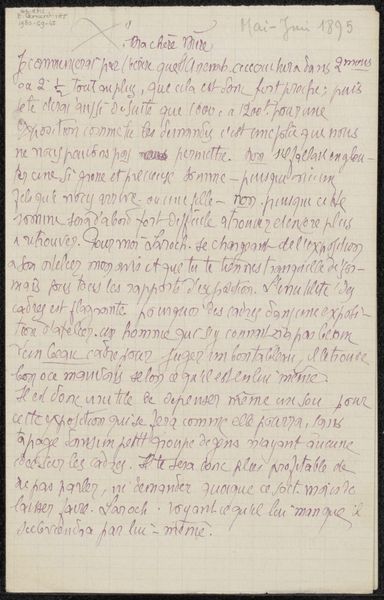 Mai-Juin 1895
Ma chère Mère
Je commencerai par t'écrire que
dans 2 mois
ou 2 ½ tout au plus, que cela est donc fort proche; puis
je te dirai aussi de suite que 1000 à 1200 f. pour une
exposition comme tu les demandes c'est une folie que nous
ne nous pouvons pas permettre.
cer une si grosse et précieuse somme - puisque rien
- non puisque cette
somme sera d'abord fort difficile à trouver et encore plus
à retrouver. Pour moi Laroch. se chargeant de l'exposition
mon avis et que tu te tiennes tranquille désor-
mais sous tous les rapports d'exposition. L'inutilité des
cadres est flagrante pourquoi des cadres dans une exposi-
tion d'atelier. un homme qui s'y connait n'a pas besoin
d'un cadre pour juger un bon tableau, il le trouve
bon ou mauvais selon ce qu'il est en lui même.
Il est donc inutile de dépenser même un sou pour
cette exposition qui se fera comme elle pourra, sans
dans un petit groupe de gens n'ayant aucune
idée sur les cadres. Il te sera donc plus profitable de
ne pas parler, ni demander quoique ce soit. mais de
laisser faire Laroch. voyant ce qu'il lui manque il
subviendra par lui-même.